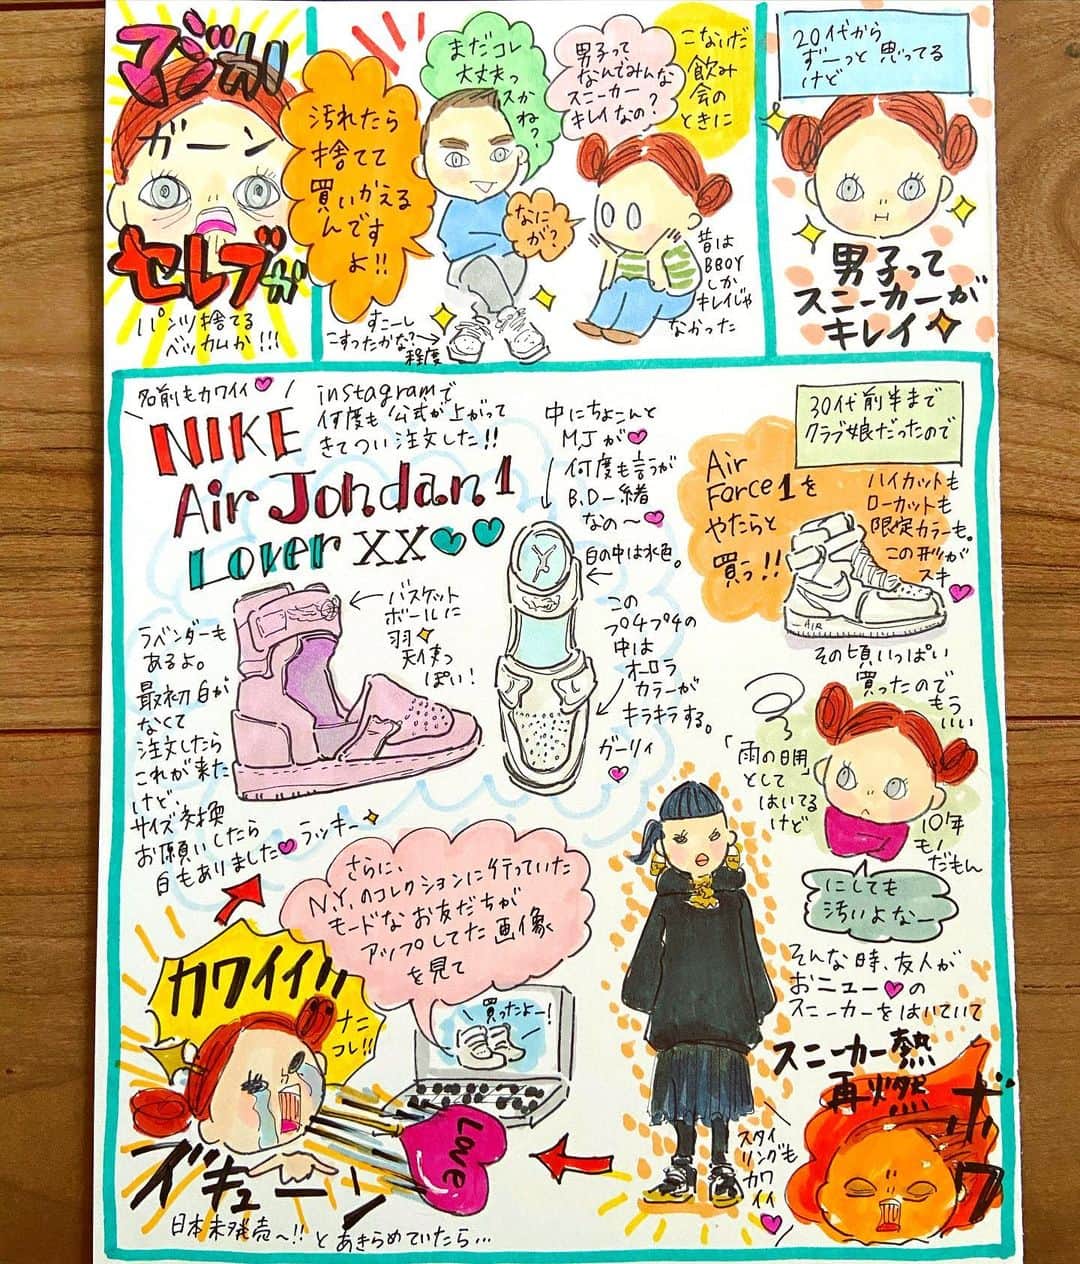 20代から
ずーっと思ってる
けど
男子って
スニーカーが
キレイ
こないだ
飲み
会の
ときに
男子って
なんでみんな
スニーカー
キレイなの？
まだコレ
大丈夫っ
スか
ね？
なに
が？
昔は
BBOY
しか
キレイじゃ
なかった
すこーし
こすったかな？
程度
汚れたら
捨てて
買いかえる
んです
よ!!
マジか!
ガーン
セレブか
パンツ捨てる
ベッカムか!!!
30代前半まで
クラブ娘だったので
Air
Force1を
やたらと
買う!!
ハイカットも
ローカットも
限定カラーも。
この形が
スキ
AIR
その頃いっぱい
買ったので
もう
いい
「雨の日用」
として
はいてる
けど
10年
も!
だもん
にしても
汚いよなー
そんな時、友人が
おニューの
スニーカーをはいていて
スニーカー熱
再燃
ボワ
スタイ
リングも
カワ
イイ
さらに、
N.Y.のコレクションに行っていた
モードなお友だちが
アップしてた画像
を見て
買ったよー!
カワイイ!!
ナニ
コレ!!
LOVE
ズキューン
日本未発売〜!!とあきらめていたら...
名前もカワイイ
NIKE
Air Jondan1
Lover XX
instagramで
何度も公式が上がって
きてつい注文した!!
中にちょこんと
M.Jが
何度も言うが
B.D一緒
なの〜
白の中は水色。
この
プチプチの
中は
オーロラ
カラーが
キラキラする。
ガーリィ
バスケット
ボールに
羽
天使っ
ぽい!
ラベンダーも
あるよ。
最初白が
なくて
注文したら
これが来た
けど、
サイズ交換
お願いしたら
白もありました
ラッキー